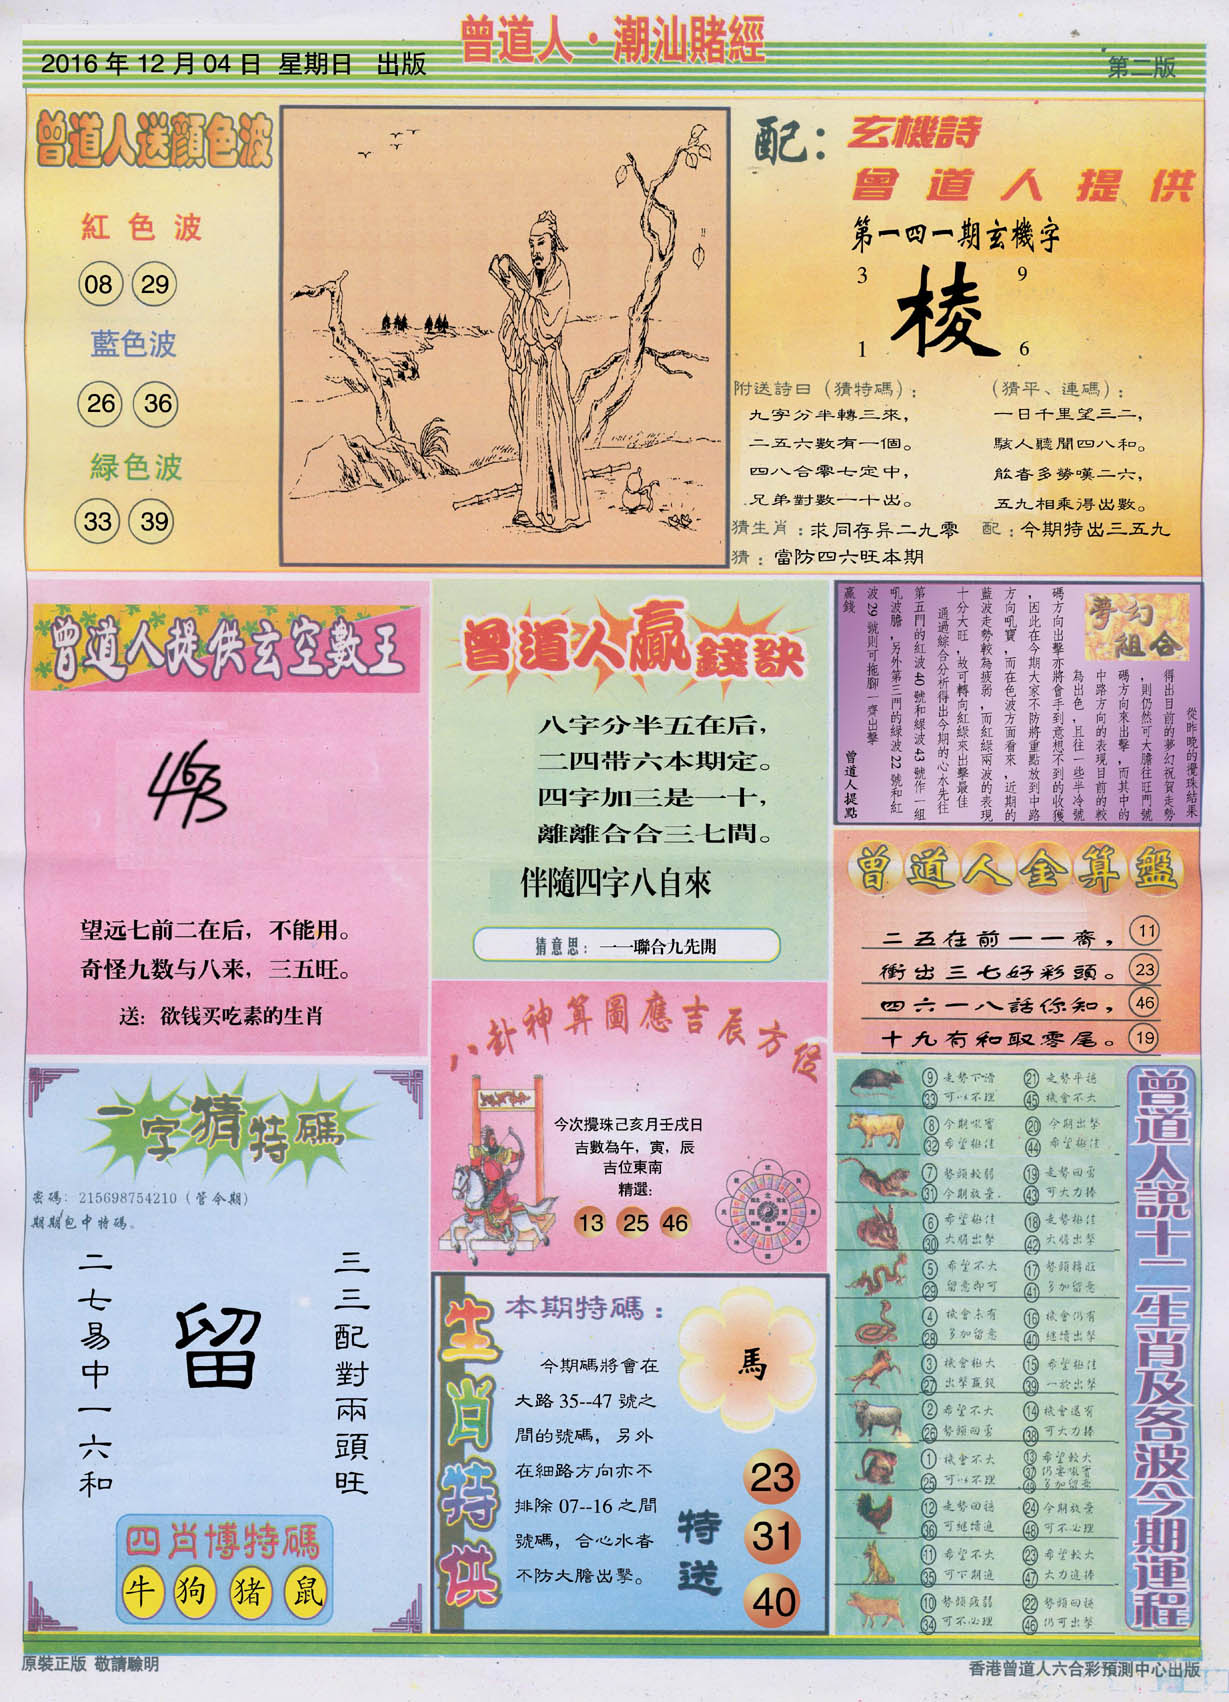 2016 年 12 月 04 日 星期日 出版
曾道人·潮汕賭經
第二版
曾道人送顏色波
紅色波
08 29
藍色波
26 36
緑色波
33 39
配：玄機詩
曾道人提供
第一四一期玄機字
3 9
棱
1 6
附送詩曰（猜特碼）：
九字分半轉三來，
二五六數有一個。
四八合零七定中，
兄弟對數一十出。
（猜平、連碼）：
一日千里望三二，
駭人聽聞四八和。
能者多勞嘆二六，
五九相乘得出數。
猜生肖：求同存异二九零 配：今期特出三五九
猜：當防四六旺本期
曾道人提供玄空數王
463
望远七前二在后，不能用。
奇怪九数与八来，三五旺。
送：欲钱买吃素的生肖
曾道人贏錢訣
八字分半五在后，
二四带六本期定。
四字加三是一十，
離離合合三七間。
伴隨四字八自來
猜意思：一一聯合九先開
夢幻組合
從昨晚的攪珠結果
得出目前的夢幻祝賀走勢
，則仍然可大膽往旺門號
碼方向來出擊，而其中的
中路方向的表現目前的較
為出色，且往一些半冷號
碼方向出擊亦將會手到意想不到的收獲
，因此在今期大家不防將重點放到中路
方向吼寶，而在色波方面看來，近期的
藍波走勢較為疲弱，而紅綠兩波的表現
十分大旺，故可轉向紅綠來出擊最佳
通過綜合分析得出今期的心水先往
第五門的紅波 40 號和緑波 43 號作一組
吼波膽，另外第三門的綠波 22 號和紅
波 29 號則可拖腳一齊出擊
贏錢
曾道人提點
曾道人金算盤
二五在前一一齊， 11
衝出三七好彩頭。 23
四六一八話你知， 46
十九有和取零尾。 19
八卦神算圖應吉辰方位
今次攪珠己亥月壬戌日
吉數為午，寅，辰
吉位東南
精選：
13 25 46
一字猜特碼
密碼：215698754210（管今期）
期期包中特碼。
二七易中一六和
留
三三配對兩頭旺
四肖博特碼
牛 狗 猪 鼠
生肖特供
本期特碼：
馬
今期碼將會在
大路 35--47 號之
間的號碼，另外
在細路方向亦不
排除 07--16 之間
號碼，合心水者
不防大膽出擊。
特送
23
31
40
曾道人説十二生肖及各波今期運程
9 走勢下滑 21 走勢平穩
33 可以不理 45 機會不大
8 今期吼寶 20 今期出擊
32 希望極佳 44 希望極佳
7 勢頭較弱 19 走勢回勇
31 今期放棄 43 可大力捧
6 希望極佳 18 走勢極佳
30 大膽出擊 42 大膽出擊
5 希望不大 17 勢頭轉旺
29 留意即可 41 多加留意
4 機會未有 16 機會仍有
28 多加留意 40 繼續出擊
3 機會極大 15 希望極佳
27 出擊贏錢 39 一於出擊
2 希望不大 14 機會還有
26 勢頭回勇 38 可大力捧
1 機會不大 13 希望較大
25 可以不理 37 仍要吼實
49 多加留意
12 走勢回穩 24 今期放棄
36 可繼續追 48 可不必理
11 希望不大 23 希望較大
35 可下期追 47 大力追捧
10 勢頭疲弱 22 勢頭回穩
34 可不必理 46 仍可出擊
原裝正版 敬請驗明
香港曾道人六合彩預測中心出版